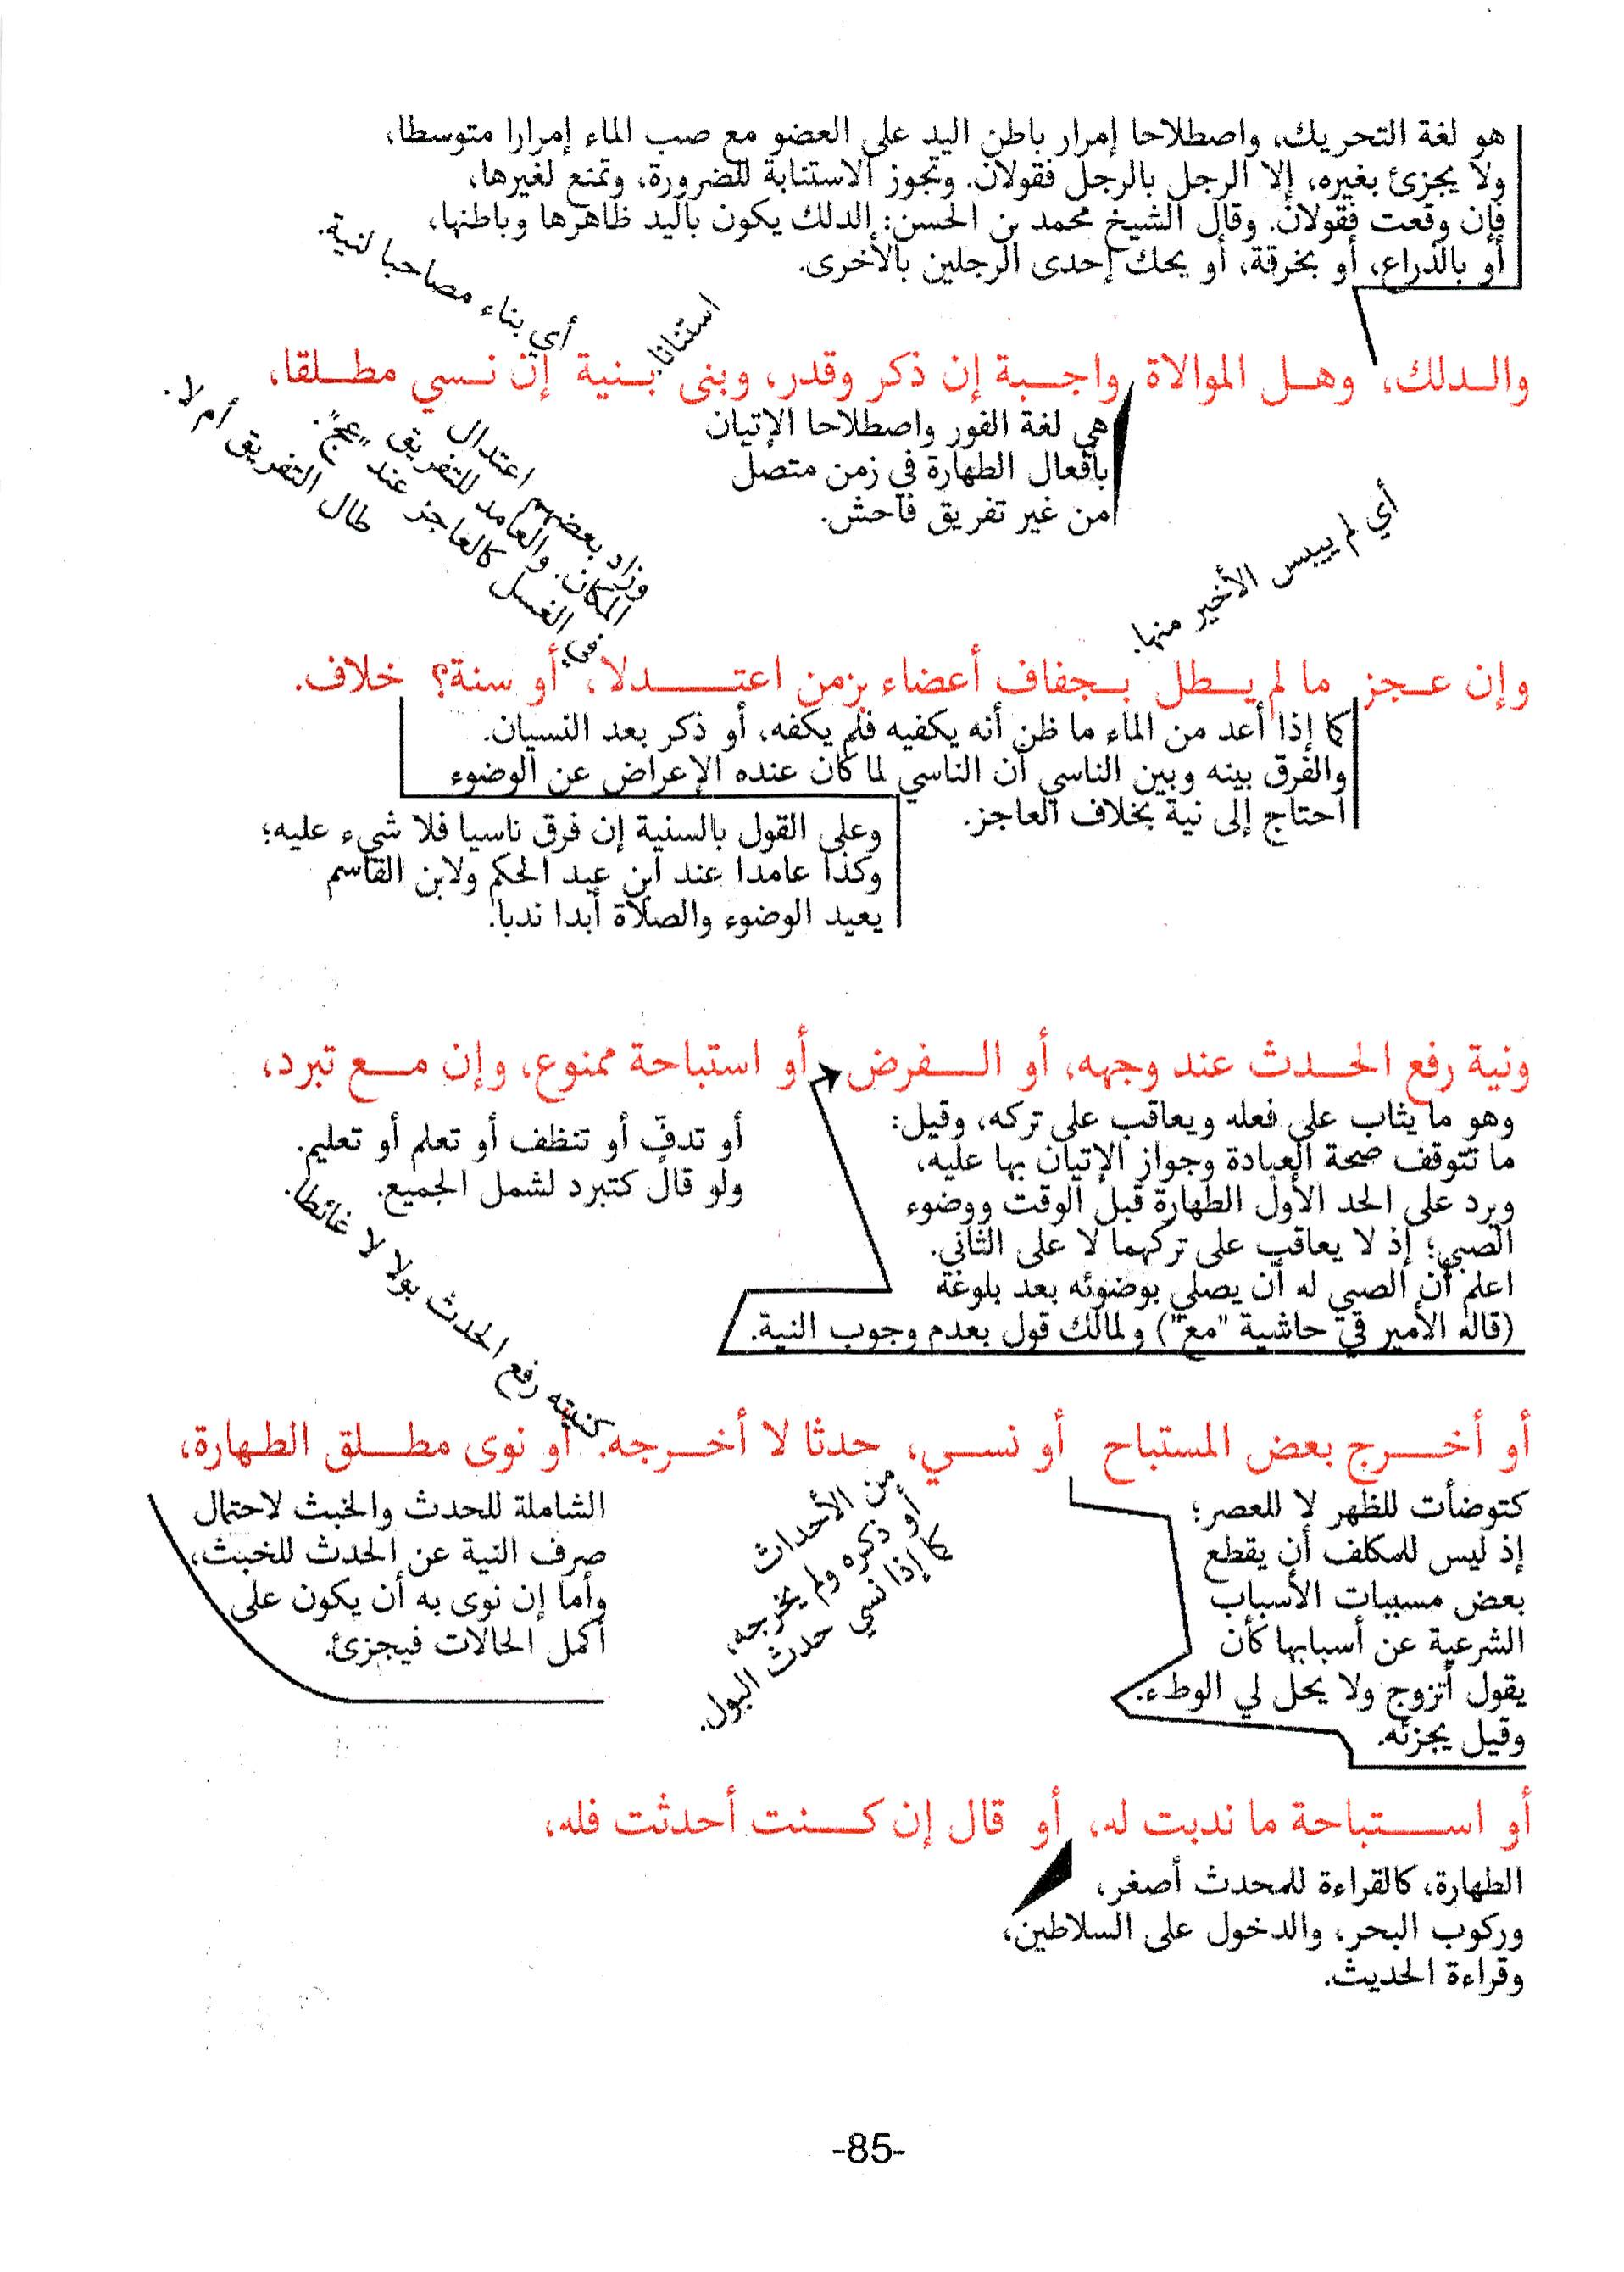 هو لغة التحريك، واصطلاحا إمرار باطن اليد على العضو مع صب الماء إمرارا متوسطا،
ولا يجزئ بغيره، إلا الرجل بالرجل فقولان. وتجوز الاستنابة للضرورة، وتمنع لغيرها،
فإن وقعت فقولان. وقال الشيخ محمد بن الحسن: الدلك يكون باليد ظاهرها وباطنها،
أو بالذراع، أو بخرقة، أو يحك إحدى الرجلين بالأخرى.
أي بناء مصاحبا لنية.
استنانا.
والدلك، وهل الموالاة واجبة إن ذكر وقدر، وبنى بنية إن نسي مطلقا،
هي لغة الفور واصطلاحا الإتيان
بأفعال الطهارة في زمن متصل
من غير تفريق فاحش.
طال التفريق أم لا.
وزاد بعضهم اعتدال
المكان. والعامد للتفريق
في الغسل كالعاجز عند "عج".
أي لم ييبس الأخير منها.
وإن عجز ما لم يطل بجفاف أعضاء بزمن اعتدلا، أو سنة؟ خلاف.
كما إذا أعد من الماء ما ظن أنه يكفيه فلم يكفه، أو ذكر بعد النسيان.
والفرق بينه وبين الناسي أن الناسي لما كان عنده الإعراض عن الوضوء
احتاج إلى نية بخلاف العاجز.
وعلى القول بالسنية إن فرق ناسيا فلا شيء عليه؛
وكذا عامدا عند ابن عبد الحكم ولابن القاسم
يعيد الوضوء والصلاة أبدا ندبا.
ونية رفع الحدث عند وجهه، أو الفرض أو استباحة ممنوع، وإن مع تبرد،
وهو ما يثاب على فعله ويعاقب على تركه، وقيل:
ما تتوقف صحة العبادة وجواز الإتيان بها عليه،
ويرد على الحد الأول الطهارة قبل الوقت ووضوء
الصبي؛ إذ لا يعاقب على تركهما لا على الثاني.
اعلم أن الصبي له أن يصلي بوضوئه بعد بلوغة
(قاله الأمير في حاشية "مع") ولمالك قول بعدم وجوب النية.
أو تدفّ أو تنظف أو تعلم أو تعليم.
ولو قال كتبرد لشمل الجميع.
كنيته رفع الحدث بولا لا غائطا.
أو أخرج بعض المستباح أو نسي، حدثا لا أخرجه. أو نوى مطلق الطهارة،
كتوضأت للظهر لا للعصر؛
إذ ليس للمكلف أن يقطع
بعض مسببات الأسباب
الشرعية عن أسبابها كأن
يقول أتزوج ولا يحل لي الوطء.
وقيل يجزئه.
من الأحداث
أو ذكره ولم يخرجه،
كما إذا نسي حدث البول.
الشاملة للحدث والخبث لاحتمال
صرف النية عن الحدث للخبث،
وأما إن نوى به أن يكون على
أكمل الحالات فيجزئ.
أو استباحة ما ندبت له، أو قال إن كنت أحدثت فله،
الطهارة، كالقراءة للمحدث أصغر،
وركوب البحر، والدخول على السلاطين،
وقراءة الحديث.
-85-